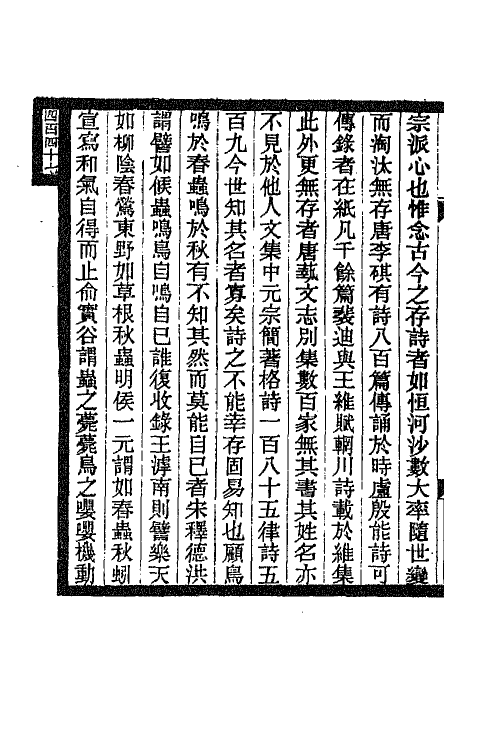 宗派心也惟念古今之存詩者如恒河沙數大率隨世變
而淘汰無存唐李碩有詩八百篇傳誦於時盧殷能詩可
傳錄者在紙凡千餘篇裴迪與王維賦輞川詩載於維集
此外更無存者唐藝文志別集數百家無其書其姓名亦
不見於他人文集中元宗簡著格詩一百八十五律詩五
百九今世知其名者寡矣詩之不能幸存固易知也顧鳥
鳴於春蟲鳴於秋有不知其然而莫能自已者宋釋德洪
謂譬如候蟲鳴鳥自鳴自已誰復收錄王滹南則譬樂天
如柳陰春鶯東野如草根秋蟲明侯一元謂如春蟲秋蚓
宣寫和氣自得而止俞實谷謂蟲之薨薨鳥之嚶嚶機動
四百四十